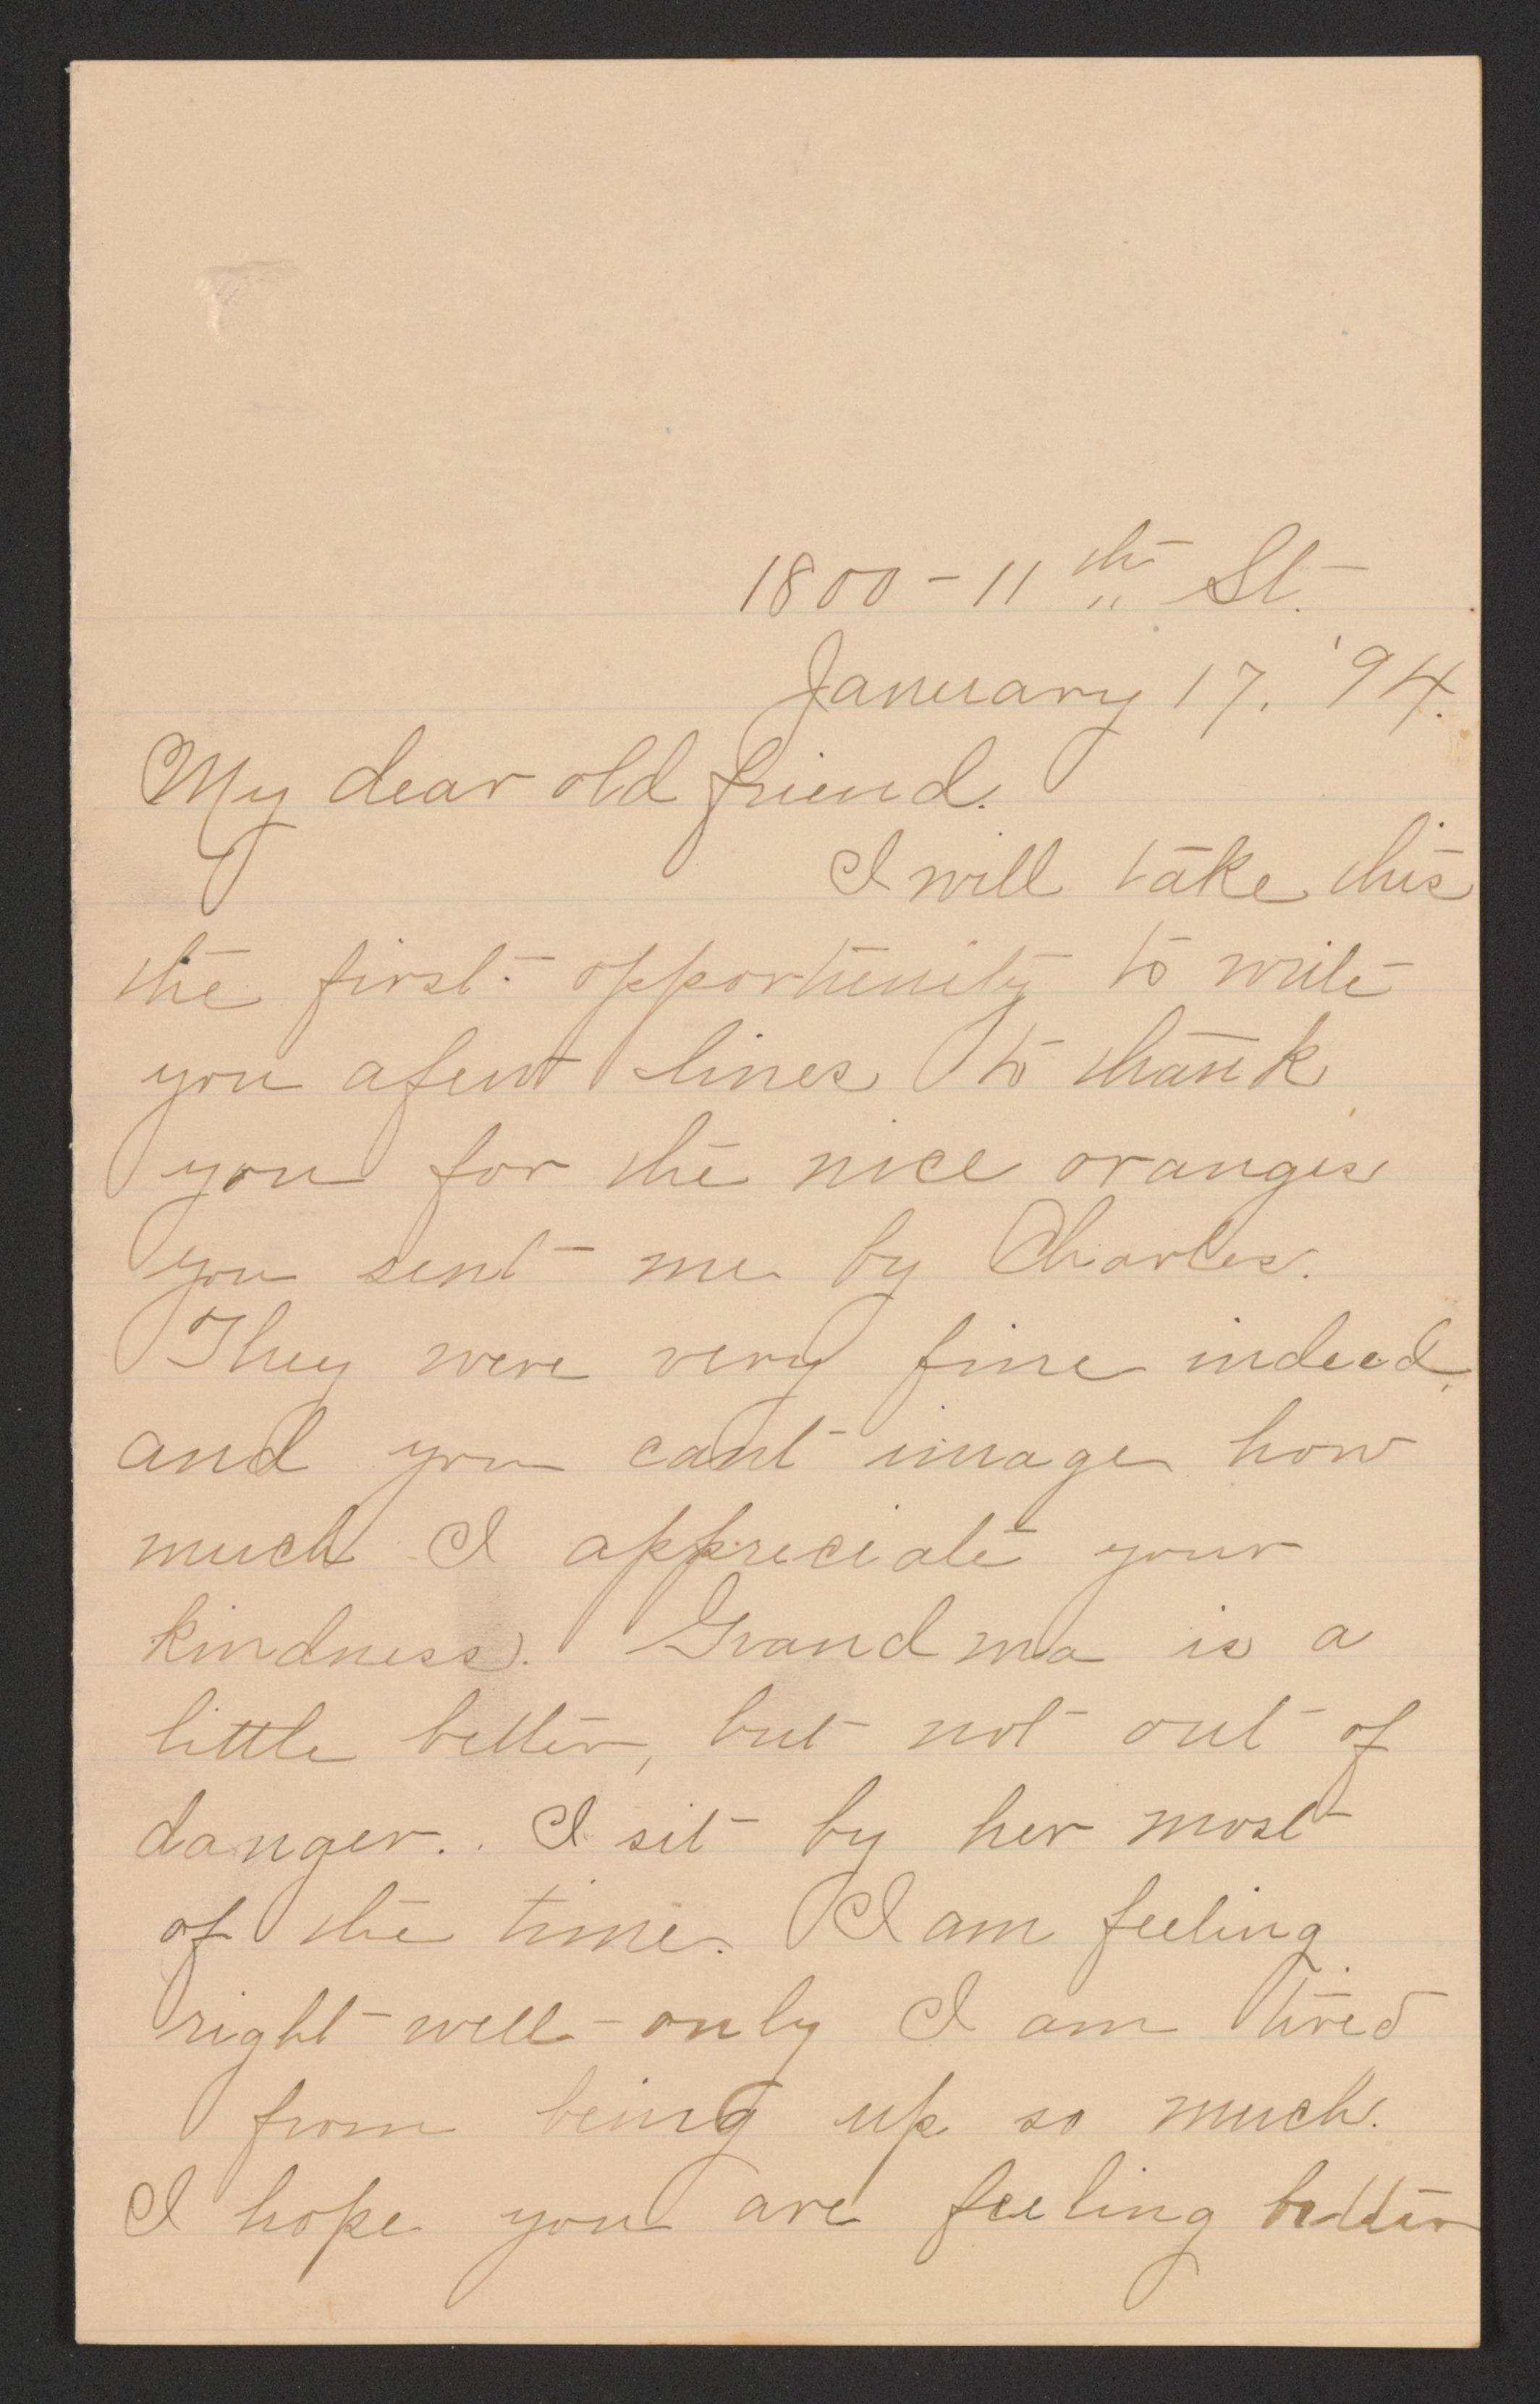 1800 - 11th St.
January 17. '94.
My dear old friend.
I will take this
the first opportunity to write
you a few lines to thank
you for the nice oranges
you sent me by Charles.
They were very fine indeed,
and you cant image how
much I appreciate your
kindness. Grandma is a
little better, but not out of
danger. . I sit by her most
of the time. I am feeling
right well - only I am tired
from being up so much.
I hope you are feeling better